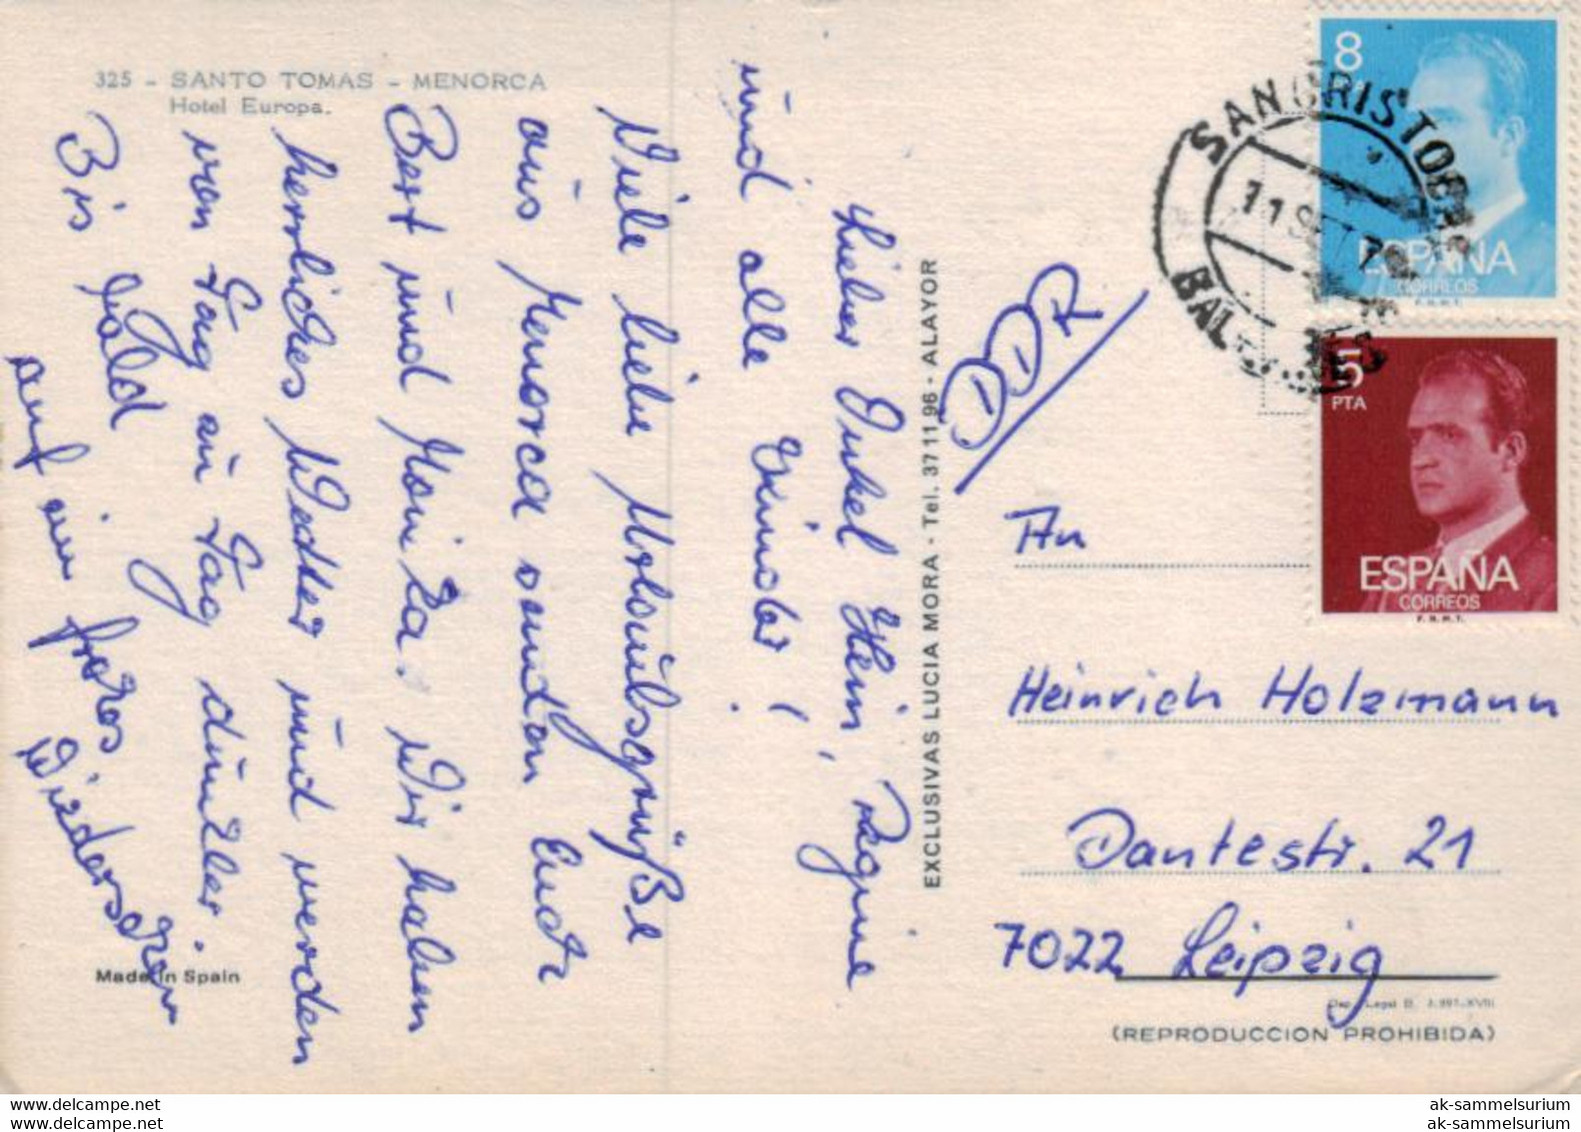 325 - SANTO TOMAS - MENORCA
Hotel Europa.
Lieber Onkel Hein, Regine
und alle Kinder!
Viele liebe Urlaubsgrüße
aus Menorca senden Euch
Bert und Monika. Wir haben
herrliches Wetter und werden
von Tag zu Tag dunkler.
Bis bald
auf ein frohes
Wiedersehen
Made in Spain
EXCLUSIVAS LUCIA MORA - Tel. 37 11 96 - ALAYOR
DDR
8
ESPAÑA
CORREOS
F.N.M.T.
SAN CRISTOBAL
11 SET
5
PTA
ESPAÑA
CORREOS
F.N.M.T.
An
Heinrich Holzmann
Dantestr. 21
7022 Leipzig
(REPRODUCCION PROHIBIDA)
ak-sammelsurium
ak-sammelsurium
ak-sammelsurium
ak-sammelsurium